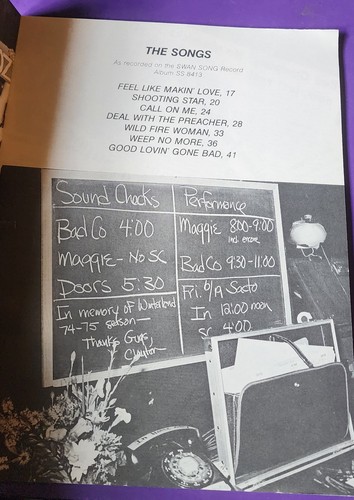 THE SONGS
As recorded on the SWAN SONG Record
Album SS 8413
FEEL LIKE MAKIN' LOVE, 17
SHOOTING STAR, 20
CALL ON ME, 24
DEAL WITH THE PREACHER, 28
WILD FIRE WOMAN, 33
WEEP NO MORE, 36
GOOD LOVIN' GONE BAD, 41
Sound Chacks
Bad Co 4:00
Maggie - No SC
Doors 5:30
In memory of Winterland
74-75 season—
Thanks Guys
Clayton
Performance
Maggie 8:00-9:00
incl. encore
Bad Co 9:30-11:00
Fri. O/A Sacto
In 12:00 noon
SC 4:00